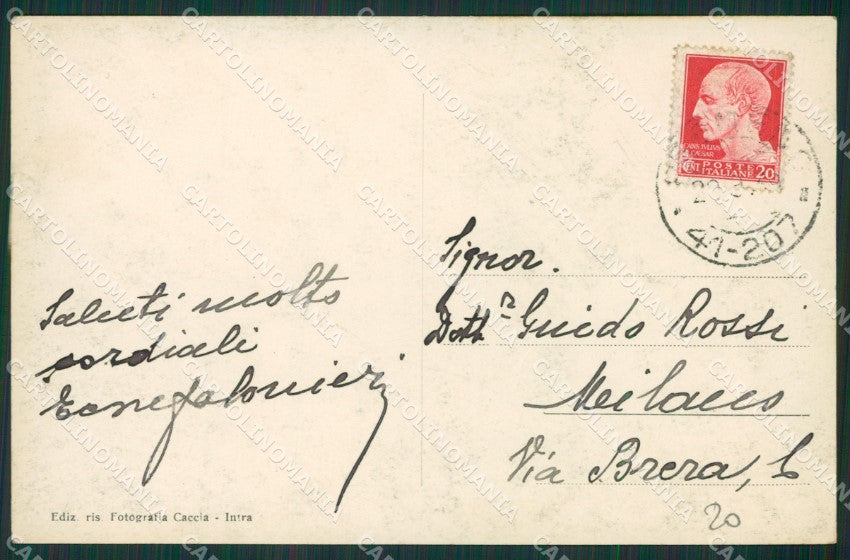 Saluti molto
cordiali
Ediz. ris. Fotografia Caccia - Intra
CAIVS IVLIVS
CAESAR
CENT POSTE 20
ITALIANE
41-207
Signor.
Dott.r Guido Rossi
Milano
Via Brera, 6
20
CARTOLINOMANIA